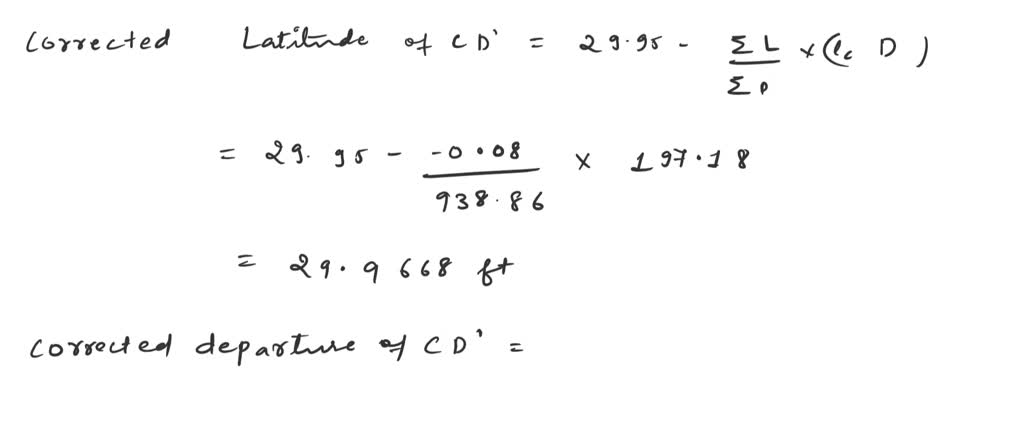 Corrected Latitude of CD' = 29.95 - ΣL/ΣP × (lc D)
= 29.95 - -0.08/938.86 × 197.18
= 29.9668 ft
corrected departure of CD' =